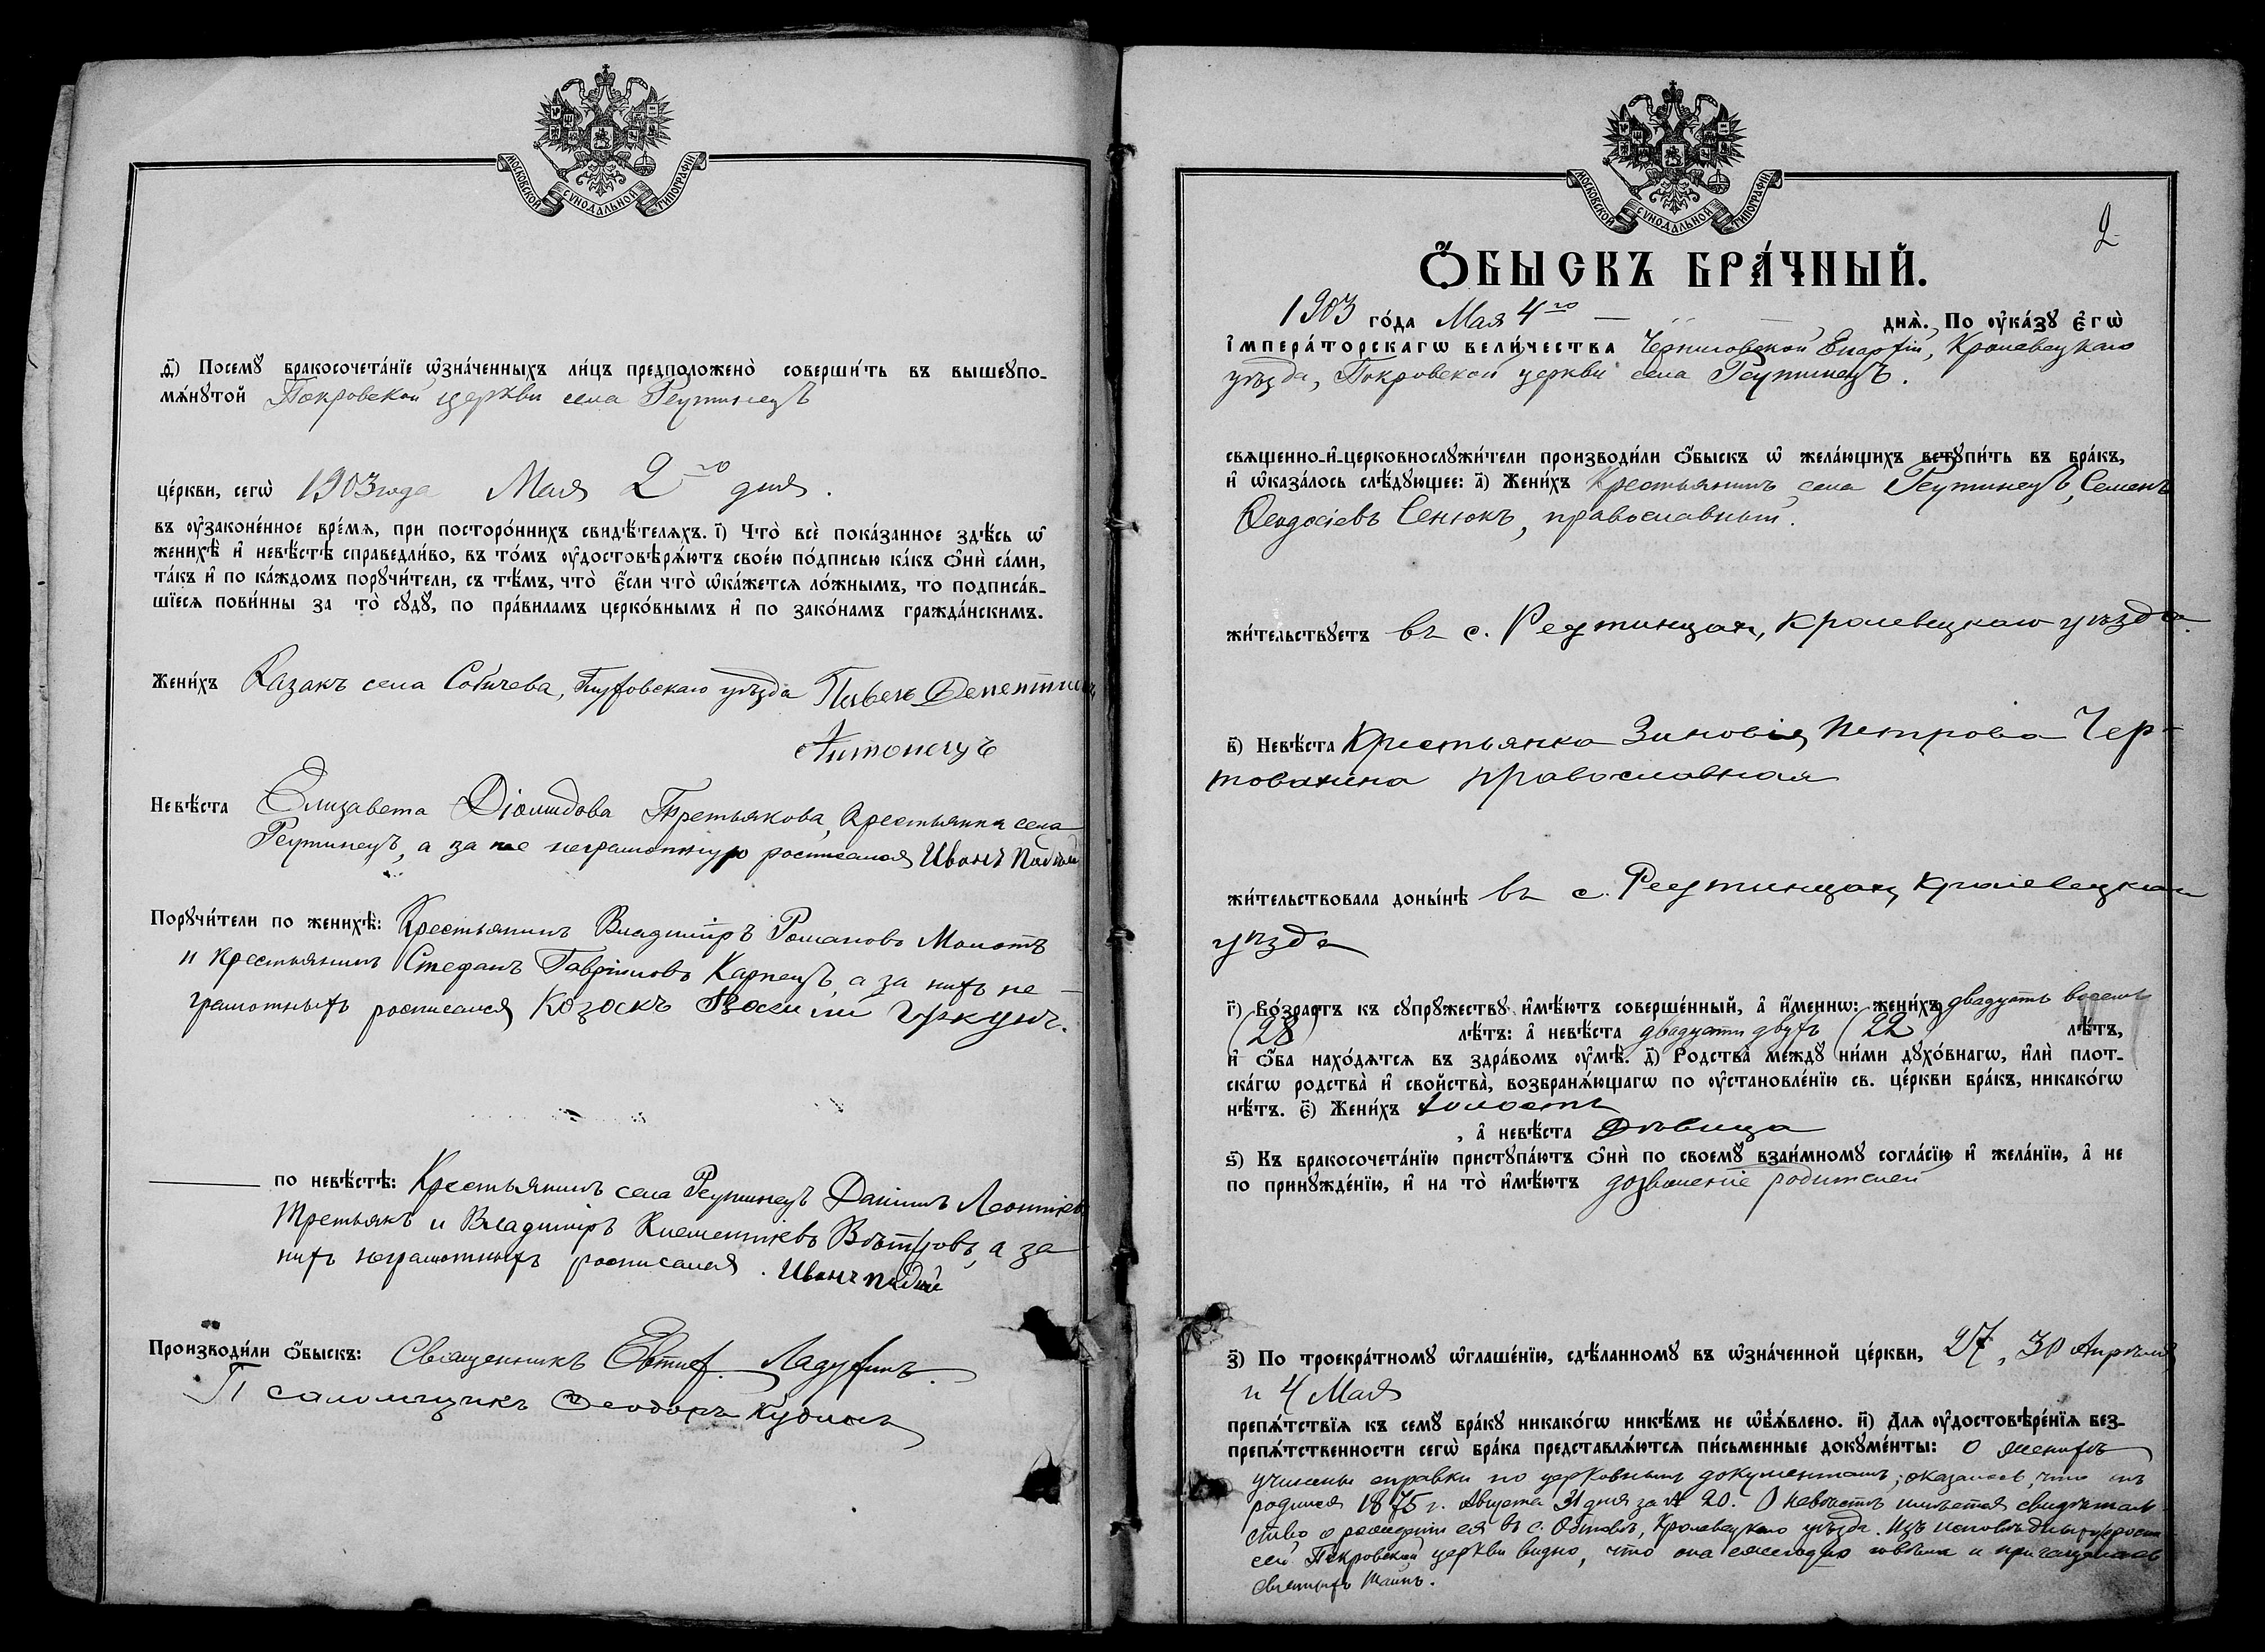 МОСКОВСКОЙ СѴНОДАЛЬНОЙ ТИПОГРАФІИ
д҃) Посемꙋ̀ бракосочета́нїе ѡ҆зна́ченныхъ ли́цъ предположено̀ соверши́ть въ вышеꙋпо-
мѧ́нꙋтой Покровской церкви села Реутинецъ
це́ркви, сегѡ̀ 1903 года Мая 2го дня.
въ ᲂу҆законе́нное вре́мѧ, при посторо́ннихъ свидѣ́телѧхъ. і҃) Что̀ всѐ пока́занное здѣ́сь ѡ҆
женихѣ̀ и҆ невѣ́стѣ справедли́во, въ то́мъ ᲂу҆достовѣрѧ́ютъ свое́ю по́дписью ка́къ ѻ҆нѝ са́ми,
та́къ и҆ по ка́ждомъ порꙋчи́тели, съ тѣ́мъ, что̀ є҆́сли что̀ ѡ҆ка́жется ло́жнымъ, то подписа́в-
шїесѧ пови́нны за то̀ сꙋдꙋ̀, по пра́виламъ церко́внымъ и҆ по зако́намъ гражда́нскимъ.
Жени́хъ Казакъ села Собичева, Глуховскаго уѣзда Павелъ Дементіевъ
Антонецъ
Невѣ́ста Елизавета Діомидова Третьякова, Крестьянка села
Реутинецъ, а за нее неграмотную росписался Иванъ
Порꙋчи́тели по женихѣ̀: Крестьянинъ Владиміръ Романовъ Молотъ
и крестьянинъ Стефанъ Гавріиловъ Карпецъ, а за нихъ не-
грамотныхъ росписался Козакъ Васили
по невѣ́стѣ: Крестьянинъ села Реутинецъ Даніилъ Леонтіевъ
Третьякъ и Владиміръ Климентіевъ Вѣтровъ, а за
нихъ неграмотныхъ росписался. Иванъ
Производи́ли ѻ҆́быскъ: Священникъ Евтиф. Ладухинъ.
Псаломщикъ Ѳеодоръ Кудинъ
МОСКОВСКОЙ СѴНОДАЛЬНОЙ ТИПОГРАФІИ
2
Ѻ҆́БЫСКЪ БРА́ЧНЫЙ.
1903 го́да Мая 4го днѧ̀. По ᲂу҆ка́зꙋ є҆гѡ̀
і҆мпера́торскагѡ вели́чества Черниговской Епархіи, Кролевецкаго
уѣзда, Покровской церкви села Реутинецъ.
свѧщенно-и҆-церковнослꙋжи́тели производи́ли ѻ҆́быскъ ѡ҆ жела́ющихъ встꙋпи́ть въ бра́къ,
и҆ ѡ҆каза́лось слѣ́дꙋющее: а҃) Жени́хъ Крестьянинъ села Реутинецъ, Семенъ
Ѳеодосіевъ Сенюкъ, православный.
жи́тельствꙋетъ въ с. Реутинцахъ, Кролевецкаго уѣзда.
в҃) Невѣ́ста Крестьянка Зиновія Петрова Чер-
товинина православная
жи́тельствовала доны́нѣ въ с. Реутинцахъ Кролевецкаго
уѣзда
г҃) Во́зрастъ къ сꙋпрꙋ́жествꙋ и҆мѣ́ютъ соверше́нный, а҆ и҆́меннѡ: жени́хъ двадцать восемь
(28) лѣ́тъ: а҆ невѣ́ста двадцати двухъ (22 лѣ́тъ,
и҆ ѻ҆́ба нахо́дѧтсѧ въ здра́вомъ ᲂу҆мѣ̀. д҃) Родства̀ междꙋ̀ ни́ми дꙋхо́внагѡ, и҆лѝ плот-
ска́гѡ родства̀ и҆ свойства̀, возбранѧ́ющагѡ по ᲂу҆становле́нїю св. це́ркви бра́къ, никако́гѡ
нѣ́тъ. є҃) Жени́хъ холостъ
, а҆ невѣ́ста дѣвица
ѕ҃) Къ бракосочета́нїю пристꙋпа́ютъ ѻ҆нѝ по своемꙋ̀ взаи́мномꙋ согла́сїю и҆ жела́нїю, а҆ не
по принꙋжде́нїю, и҆ на то̀ и҆мѣ́ютъ дозволеніе родителей
з҃) По троекра́тномꙋ ѡ҆глаше́нїю, сдѣ́ланномꙋ въ ѡ҆зна́ченной це́ркви, 27, 30 Апрѣля
и 4 Мая
препѧ́тствїѧ къ семꙋ̀ бра́кꙋ никако́гѡ никѣ́мъ не ѡ҆бъѧ́влено. и҃) Длѧ ᲂу҆достовѣре́нїѧ без-
препѧ́тственности сегѡ̀ бра́ка представлѧ́ютсѧ пи́сьменные докꙋме́нты: О женихѣ
учинены справки по церковнымъ документамъ; оказалось, что онъ
родился 1875 г. Августа 31 дня за № 20. О невѣстѣ имѣется свидѣтель-
ство о рожденіи ея въ с. Обтовѣ, Кролевецкаго уѣзда. Изъ исповѣдныхъ росписей
Покровской церкви видно, что она ежегодно говѣла и причащалась
святыхъ Таинъ.